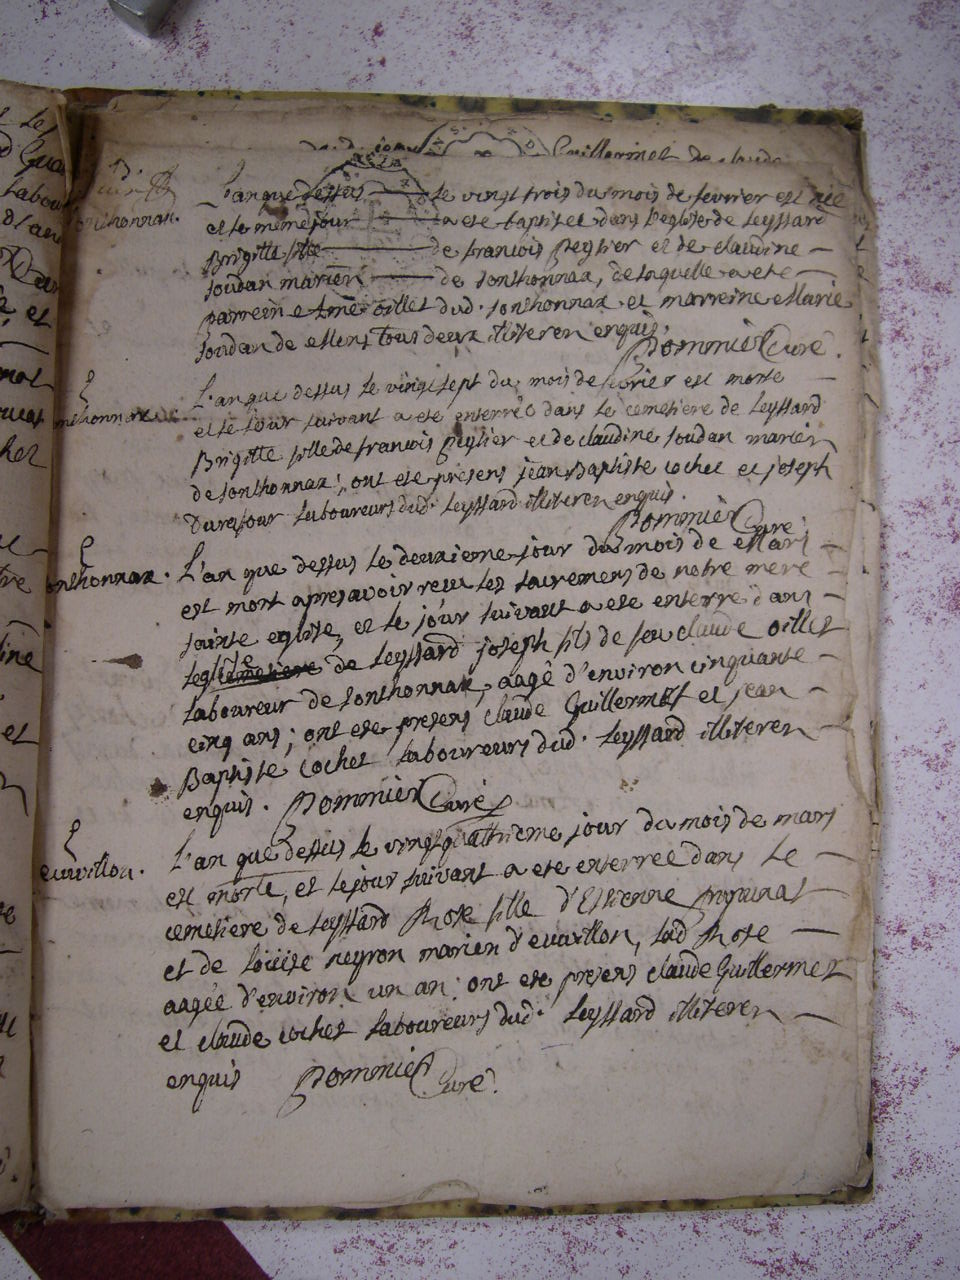 Guillermet de claude
Sonthonnax.
L'an que dessus le vingt trois du mois de fevrier est née
et le meme jour a ete baptisee dans l'eglise de Leyssard
Brigitte fille de francois Peglier et de claudine
Joudan marien de Sonthonnax, de laquelle a ete
parrein Amé oillet dud. Sonthonnax et marreine Marie
Joudan de tous deux illiteren enquis.
Pommier Curé.
Sonthonnax
L'an que dessus le vingt sept du mois de fevrier est morte
et le jour suivant a ete enterrée dans le cemetiere de Leyssard
Brigitte fille de francois Peglier et de claudine Joudan marien
de Sonthonnax; ont ete presens jean Baptiste cochet et joseph
Durafour laboureurs dud. Leyssard illiteren enquis.
Pommier Curé
Sonthonnax.
L'an que dessus le deuxieme jour du mois de Mars
est mort apres avoir recu les sacremens de notre mere
sainte eglise, et le jour suivant a ete enterré dans
l'eglise cemetiere de Leyssard joseph fils de feu claude oillet
laboureur de Sonthonnax, aagé d'environ cinquante
cinq ans; ont ete presens claude Guillermet et jean
Baptiste cochet laboureurs dud. Leyssard illiteren
enquis. Pommier Curé
evuvillon.
L'an que dessus le vingt quattrieme jour du mois de mars
est morte, et le jour suivant a ete enterrée dans le
cemetiere de Leyssard Rose fille d'Estienne
et de louise neyron marien d'evuvillon, lad Rose
aagée d'environ un an; ont ete presens claude Guillermet
et claude cochet laboureurs dud. Leyssard illiteren
enquis Pommier Curé.